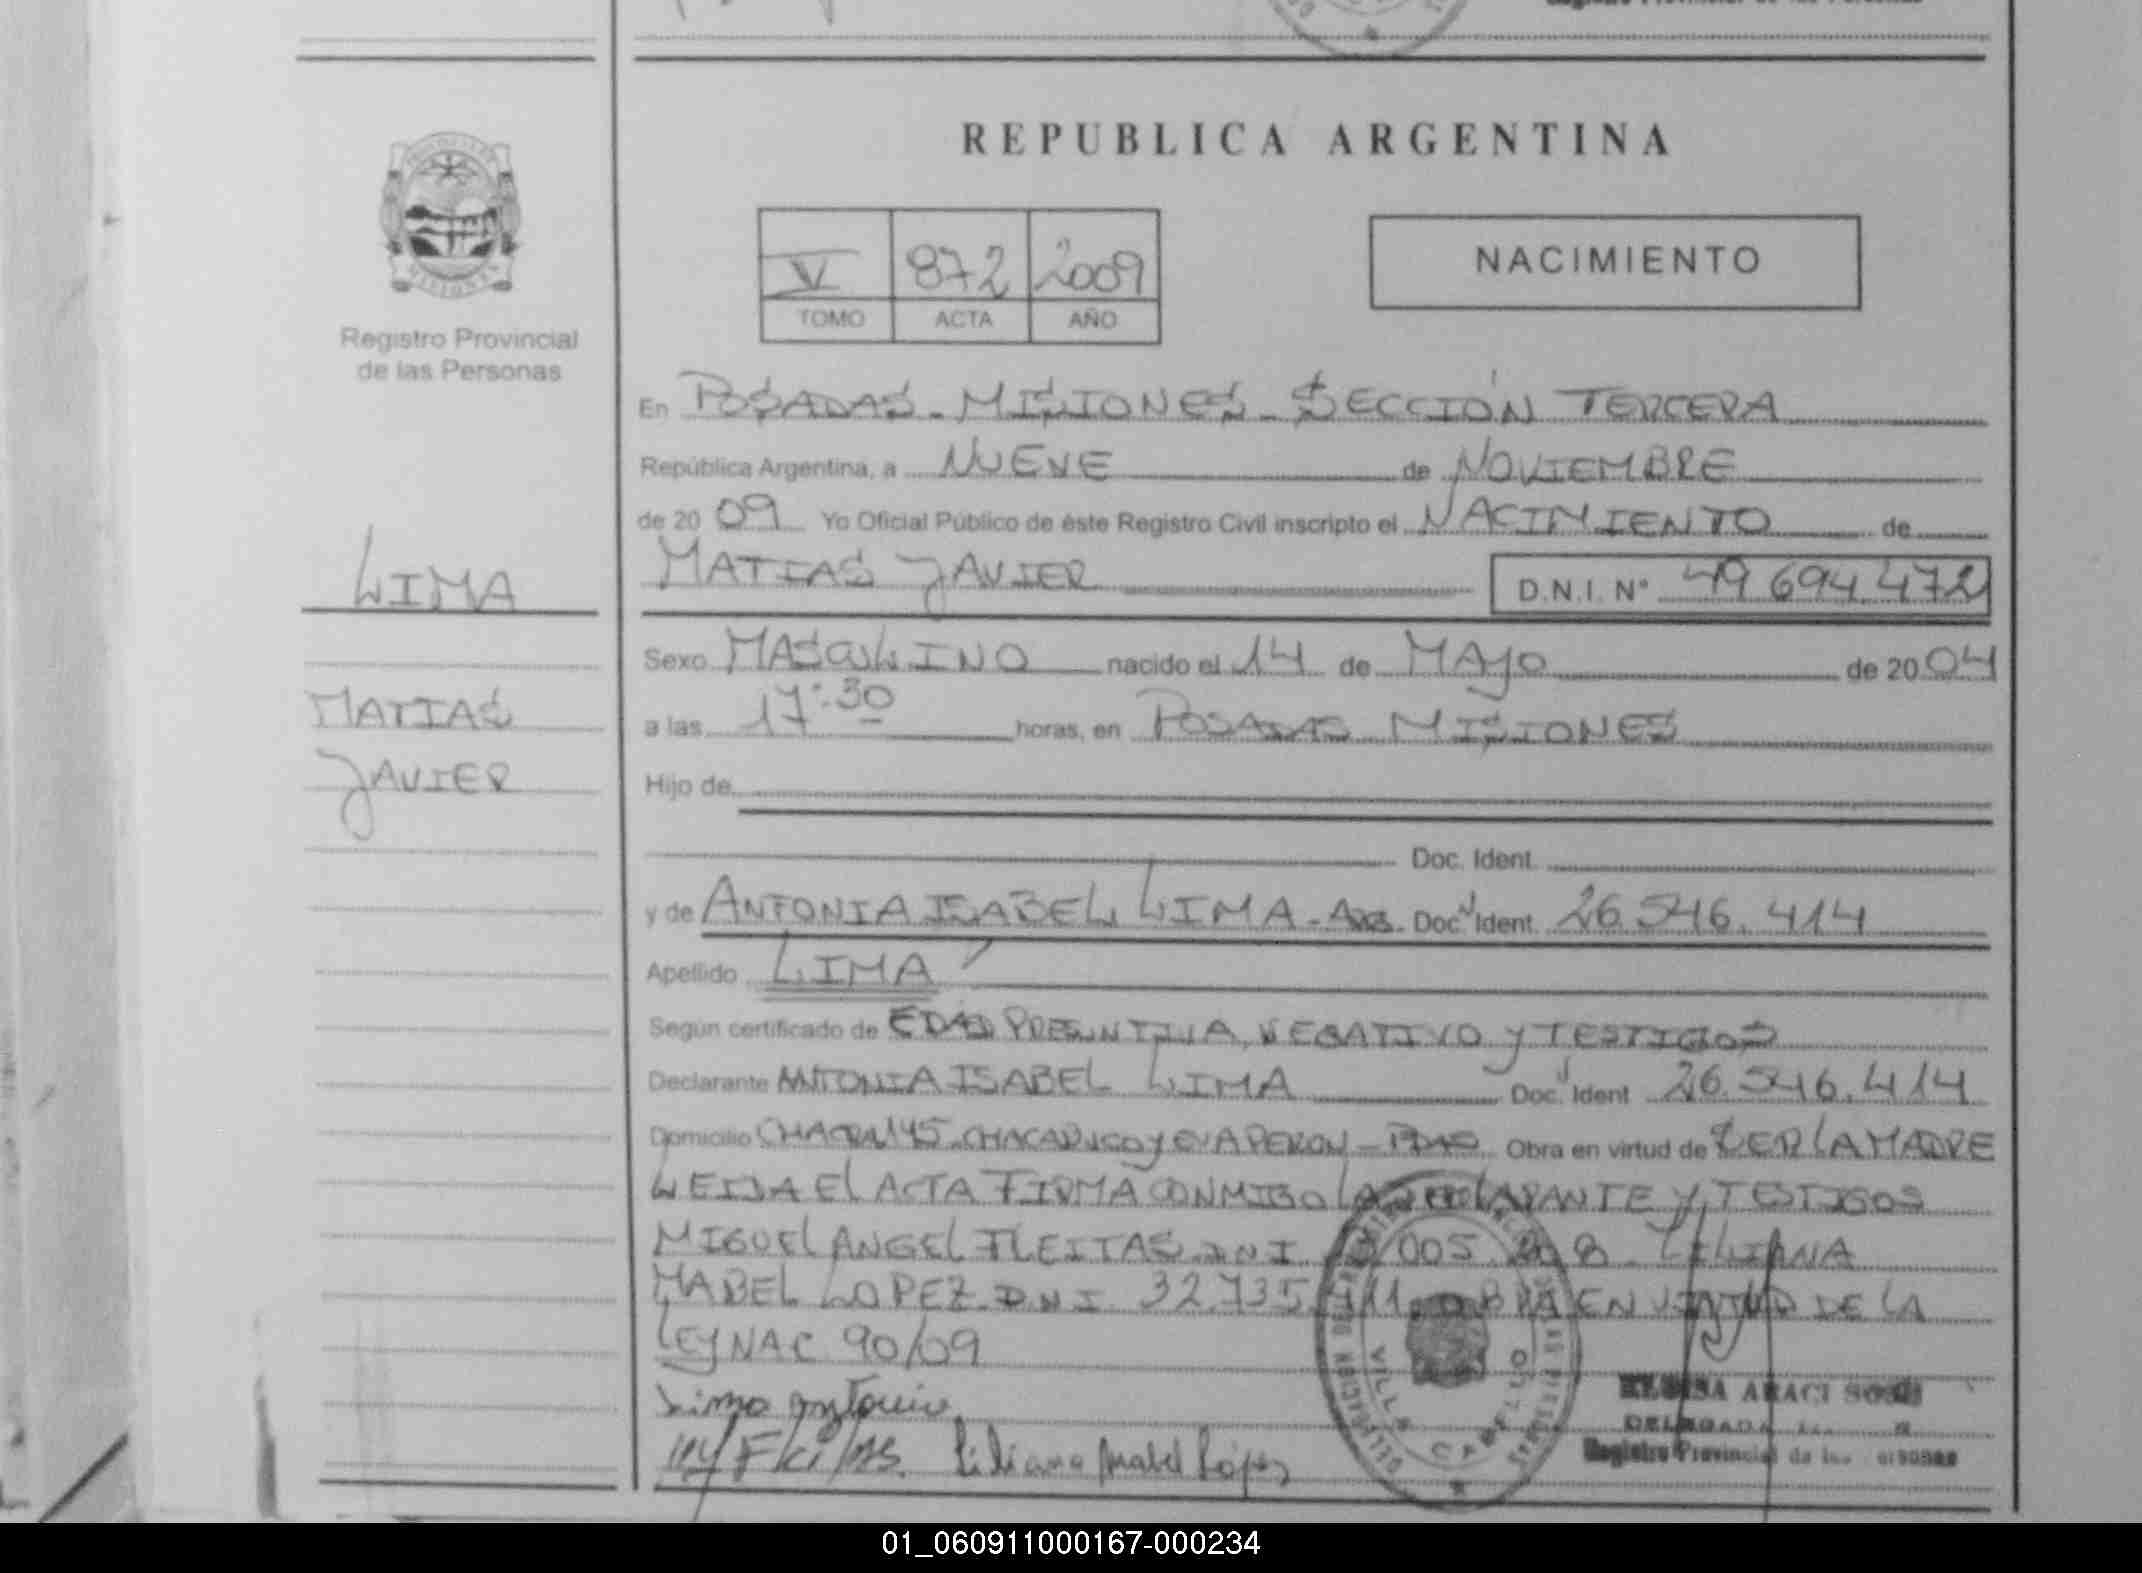 REPUBLICA ARGENTINA
V 872 2009
TOMO ACTA AÑO
NACIMIENTO
Registro Provincial
de las Personas
LIMA
MATIAS
JAVIER
En POSADAS - MISIONES - SECCIÓN TERCERA
República Argentina, a NUEVE de NOVIEMBRE
de 2009 Yo Oficial Público de éste Registro Civil inscripto el NACIMIENTO de
MATIAS JAVIER D.N.I. Nº 49 694 472
Sexo MASCULINO nacido el 14 de MAYO de 2004
a las 17:30 horas, en POSADAS MISIONES
Hijo de
Doc. Ident.
y de ANTONIA ISABEL LIMA - ARG. Doc. Ident. 26.546.414
Apellido LIMA
Según certificado de EDAD PRESUNTIVA, NEGATIVO y TESTIGOS
Declarante ANTONIA ISABEL LIMA Doc. Ident. 26.546.414
Domicilio CHACRA 145 y EVA PERON - PDAS Obra en virtud de SER LA MADRE
LEIDA El ACTA FIRMA CONMIGO LA DECLARANTE Y TESTIGOS
MIGUEL ANGEL FLEITAS D.N.I. 005 LILIANA
MABEL LOPEZ D.N.I. 32.735. OBRA EN VIRTUD DE LA
LEY NAC 90/09
Lima Antonia
Liliana Mabel López
VILLA CABELLO
ARACI SOSA
DELEGADA
Registro Provincial de las Personas
01_060911000167-000234